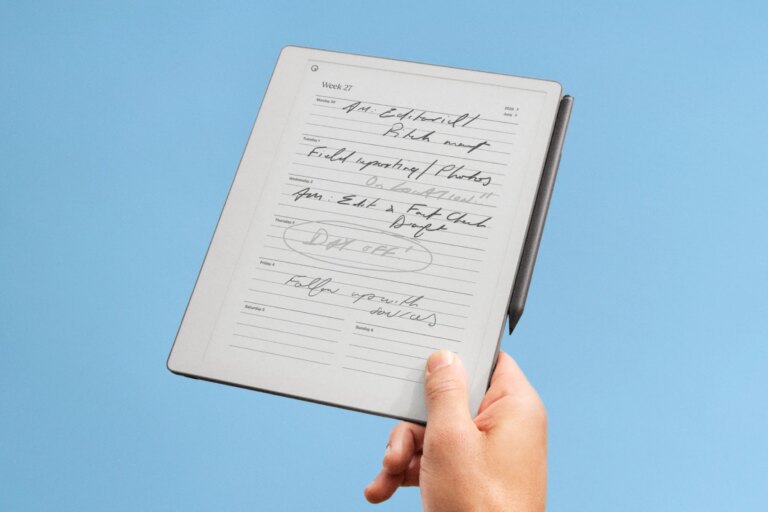 Week 27
June
Monday 30
AM: Editorial
Pitch meet
Tuesday 1
Field reporting / Photos
On Location"
Wednesday 2
AM: Edit & Fact Check
Draft
Thursday 3
DAY OFF!
Friday 4
Follow up with
sources
Saturday 5
Sunday 6